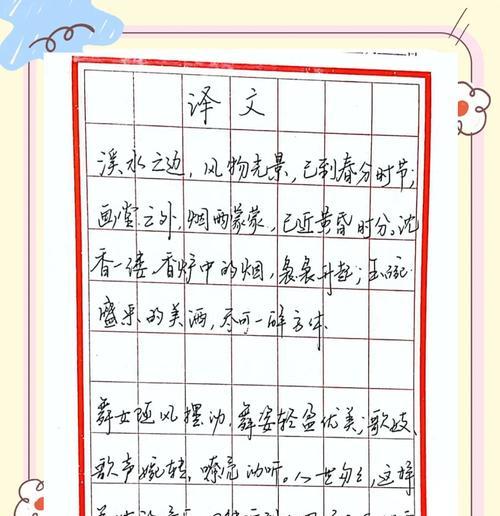 译文
溪水之边,风物光景,已到春分时节;
画堂之外,烟雨蒙蒙,已近黄昏时分。沈
香一缕,香炉中的烟,袅袅升起;玉碗
盛来的美酒,尽可一醉方休.
舞女随风摆动,舞姿轻盈优美;歌妓
歌声婉转,嘹亮动听。人世匆匆,这样